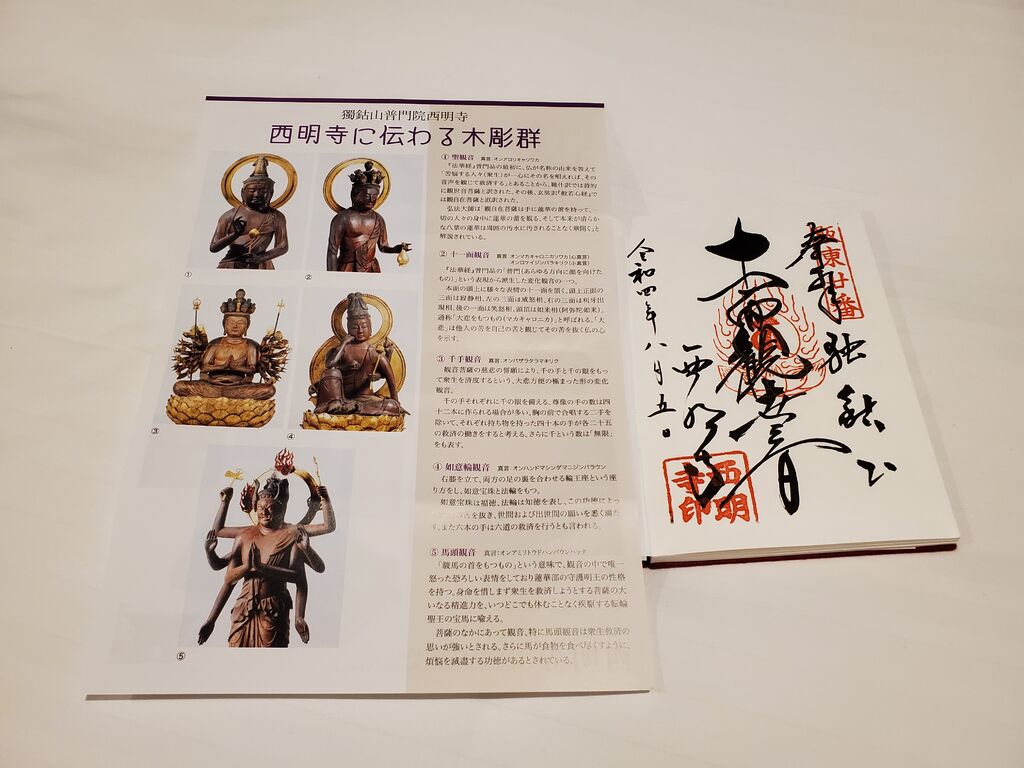 獨鈷山普門院西明寺
西明寺に伝わる木彫群
①
②
③
④
⑤
① 聖観音 真言：オンアロリキャソワカ
『法華経』普門品の最初に、仏が名称の由来を答えて
「苦悩する人々（衆生）が一心にその名を唱えれば、その
音声を観じて救済する」とあることから、羅什訳では詩的
に観世音菩薩と訳された。その後、玄奘訳『般若心経』で
は観自在菩薩と直訳された。
弘法大師は「観自在菩薩は手に蓮華の蕾を持って、一
切の人々の身中に蓮華の蕾を観る。そして本来が清らか
な八葉の蓮華は周囲の汚水に汚されることなく華開く」と
解説されている。
② 十一面観音 真言：オンマカキャロニカソワカ（心真言）
オンロケイジンバラキリク（小真言）
『法華経』普門品の「普門（あらゆる方向に顔を向けた
もの）」という表現から派生した変化観音の一つ。
本面の頭上に様々な表情の十一面を頂く。頭上正面の
三面は寂静相、左の三面は威怒相、右の三面は利牙出
現相、後の一面は笑怒相、頭頂は如来相（阿弥陀如来）。
通称「大悲をもつもの（マカキャロニカ）」と呼ばれる。「大
悲」は他人の苦を自己の苦と観じてその苦を抜く仏の心
を示す。
③ 千手観音 真言：オンバザラタラマキリク
観音菩薩の慈悲の誓願により、千の手と千の眼をもっ
て衆生を済度するという、大悲方便の極まった形の変化
観音。
千の手それぞれに千の眼を備える。尊像の手の数は四
十二本に作られる場合が多い。胸の前で合唱する二手を
除いて、それぞれ持ち物を持った四十本の手が各二十五
の救済の働きをすると考える。さらに千という数は「無限」
をも表す。
④ 如意輪観音 真言：オンハンドマシンダマニジンバラウン
右膝を立て、両方の足の裏を合わせる輪王座という座
り方をし、如意宝珠と法輪をもつ。
如意宝珠は福徳、法輪は知徳を表し、この功徳によっ
の苦を抜き、世間および出世間の願いを悉く満た
す。また六本の手は六道の救済を行うとも言われる。
⑤ 馬頭観音 真言：オンアミリトウドハンバウンハッタ
「駿馬の首をもつもの」という意味で、観音の中で唯一
怒った恐ろしい表情をしており蓮華部の守護明王の性格
を持つ。身命を惜しまず衆生を救済しようとする菩薩の大
いなる精進力を、いつどこでも休むことなく疾駆する転輪
聖王の宝馬に喩える。
菩薩のなかにあって観音、特に馬頭観音は衆生救済の
思いが強いとされる。さらに馬が食物を食べ尽くすように、
煩悩を滅盡する功徳があるとされている。
奉拝 独鈷山
坂東廿番
十一面観世音
西明寺
令和四年八月五日
西明
寺印